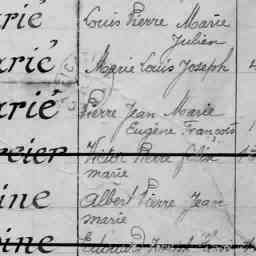 arie Louis Pierre Marie
Julien
arié Marie Louis Joseph 4
arié Pierre Jean Marie
Eugène François 1
ercier Victor Pierre Félix
marie
ine Albert Pierre Jean
marie
ine Edouard